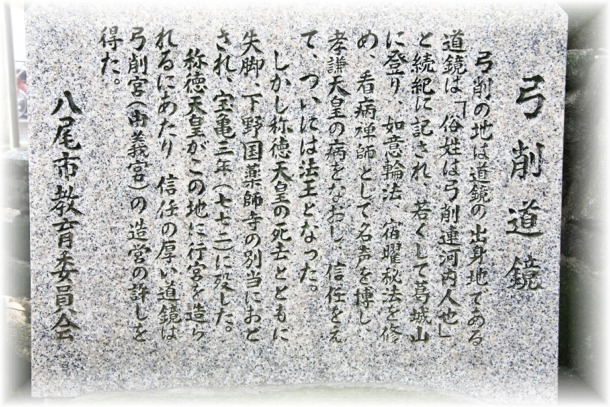 弓削道鏡
弓削の地は道鏡の出身地である
道鏡は「俗姓は弓削連河内人也」
と続紀に記され、若くして葛城山
に登り、如意輪法、宿曜秘法を修
め、看病禅師として名声を博し、
孝謙天皇の病をなおし、信任をえ
て、ついには法王となった。
しかし称徳天皇の死去とともに
失脚、下野国薬師寺の別当におと
され、宝亀三年(七七二)に歿した。
称徳天皇がこの地に行宮を造ら
れるにあたり、信任の厚い道鏡は
弓削宮(由義宮)の造営の許しを
得た。
八尾市教育委員会